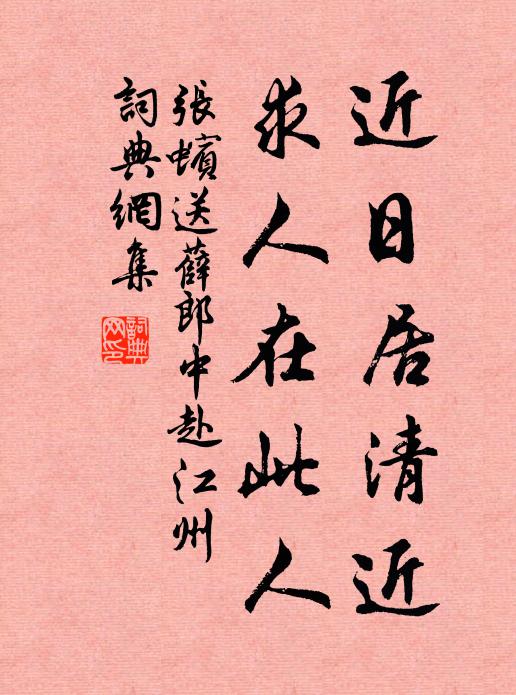 近日居清近
求人在此人
張蠙送薛郎中赴江州
詞典網集
詞典網印